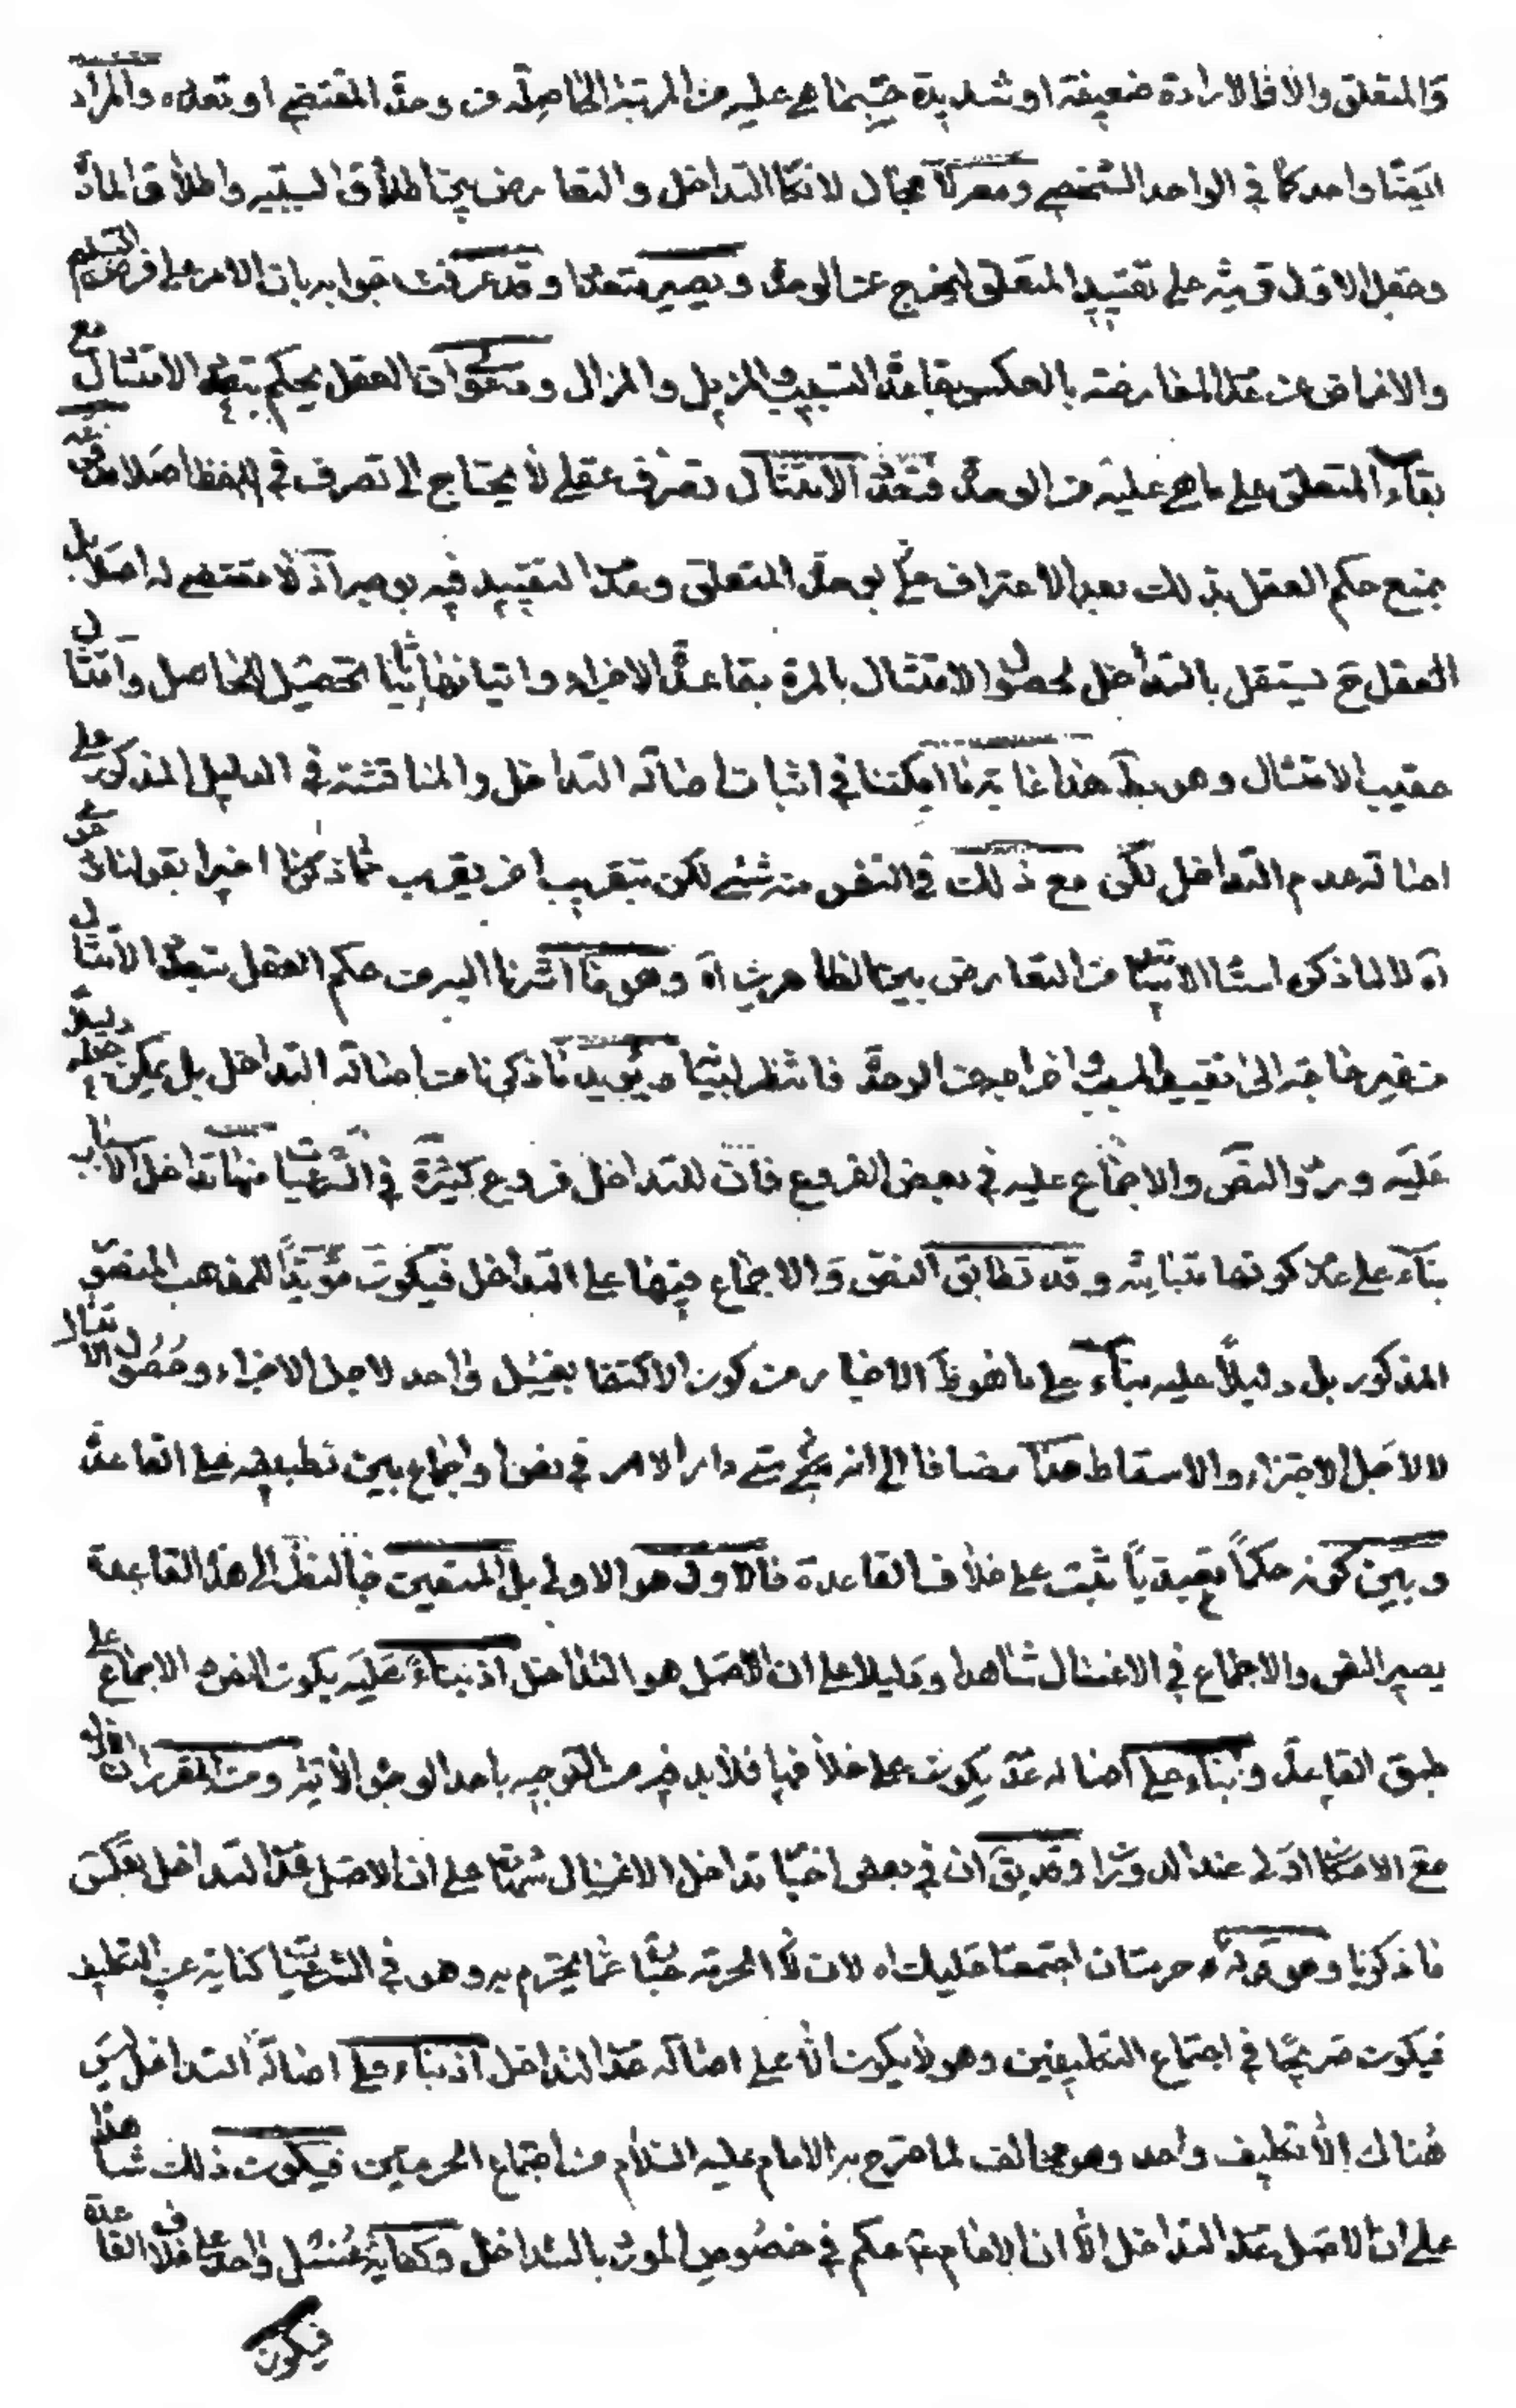 والمتعلق والا فالارادة ضعيفة او شديدة حسبما هي عليه من المرتبة الحاصلة من وحدة المقتضي او تعدده والمراد
ايضا واحد كما في الواحد الشخصي ومعركة مجال لانكا التداخل والتعارض بين اطلاق السببية واطلاق المادة
وجعل الاول قرينة على تقييد المتعلق ليخرج عن الوحدة ويصير متعددا وقد عرفت جوابه بان الامر على فرض التسليم
والاغماض عن عدم المعارضة بالعكس بقاعدة التسبيب والمزيل والمزال ومع ان العقل يحكم بتعدد الامتثال مع
بقاء المتعلق على ما هي عليه من الوحدة فتعدد الامتثال تصرف عقلي لا يحتاج الى تصرف في اللفظ اصلا
بمنع حكم العقل بذلك بعد الاعتراف بوحدة المتعلق وعدم التقييد فيه بوجه اذ لا مقتضي له اصلا بل
العقل ح يستقل بالتداخل لحصول الامتثال بالمرة بقاعدة الاجزاء واتيانها ثانيا تحصيل للحاصل وامتثال
عقيب الامتثال وهو بط هذا غاية ما امكننا في اثبات اصالة التداخل والمناقشة في الدليل المذكور على
اصالة عدم التداخل لكن مع ذلك في النفس منه شيء لكن بتقريب اخر يقرب مما ذكرنا اخيرا بقولنا
اه لا لما ذكره استاد الاساتيد من التعارض بين الظاهرين اه وهو ما اشرنا اليه من حكم العقل بتعدد الامتثال
من غير حاجة الى تقييد المسبب اخراجه عن الوحدة فانتظر لبيانه ويؤيد ما ذكرنا من اصالة التداخل بل يمكن جعله دليلا
عليه ورود النص والاجماع عليه في بعض الفروع فان للتداخل فروع كثيرة في الشرعيات منها تداخل الاغسال
بناء على عدم كونها متباينة وقد تطابق النص والاجماع فيها على التداخل فيكون مؤيدا للمذهب المنصور
المذكور بل دليلا عليه بناء على ما هو ظ الاخبار من كون الاكتفا بغسل واحد لاجل الاجزاء وحصول الامتثال
لا لاجل الاجتزاء والاسقاط هذا مضافا الى انه متى دار الامر في نص او اجماع بين تطبيقه على القاعدة
وبين كونه حكما تعبديا ثبت على خلاف القاعدة فالاول هو الاولى بل المتعين فبالنظر الى هذه القاعدة
يصير النص والاجماع في الاغسال شاهدا ودليلا على ان الاصل هو التداخل اذ بناء عليه يكون النص والاجماع على
طبق القاعدة وبناء على اصالة عدمه يكون على خلافها فلا بد فيه من التوجيه باحد الوجوه الاتية ومن المقرر ان
مع الامكان اولى عند الدوران وقد يق ان في بعض اخبار تداخل الاغسال شهادة على ان الاصل عدم التداخل بعكس
ما ذكرنا وهو قوله ع حرمتان اجتمعتا عليك اه لان الحرمة عبارة عما يحترم به وهو في الشرعيات كناية عن التكليف
فيكون صريحا في اجتماع التكليفين وهو لا يكون الا على اصالة عدم التداخل اذ بناء على اصالة التداخل ليس
هناك الا تكليف واحد وهو مخالف لما صرح به الامام عليه السلام من اجتماع الحرمتين فيكون ذلك شاهدا
على ان الاصل عدم التداخل الا ان الامام ع حكم في خصوص المورد بالتداخل وكفاية غسل واحد على خلاف القاعدة
فيكون